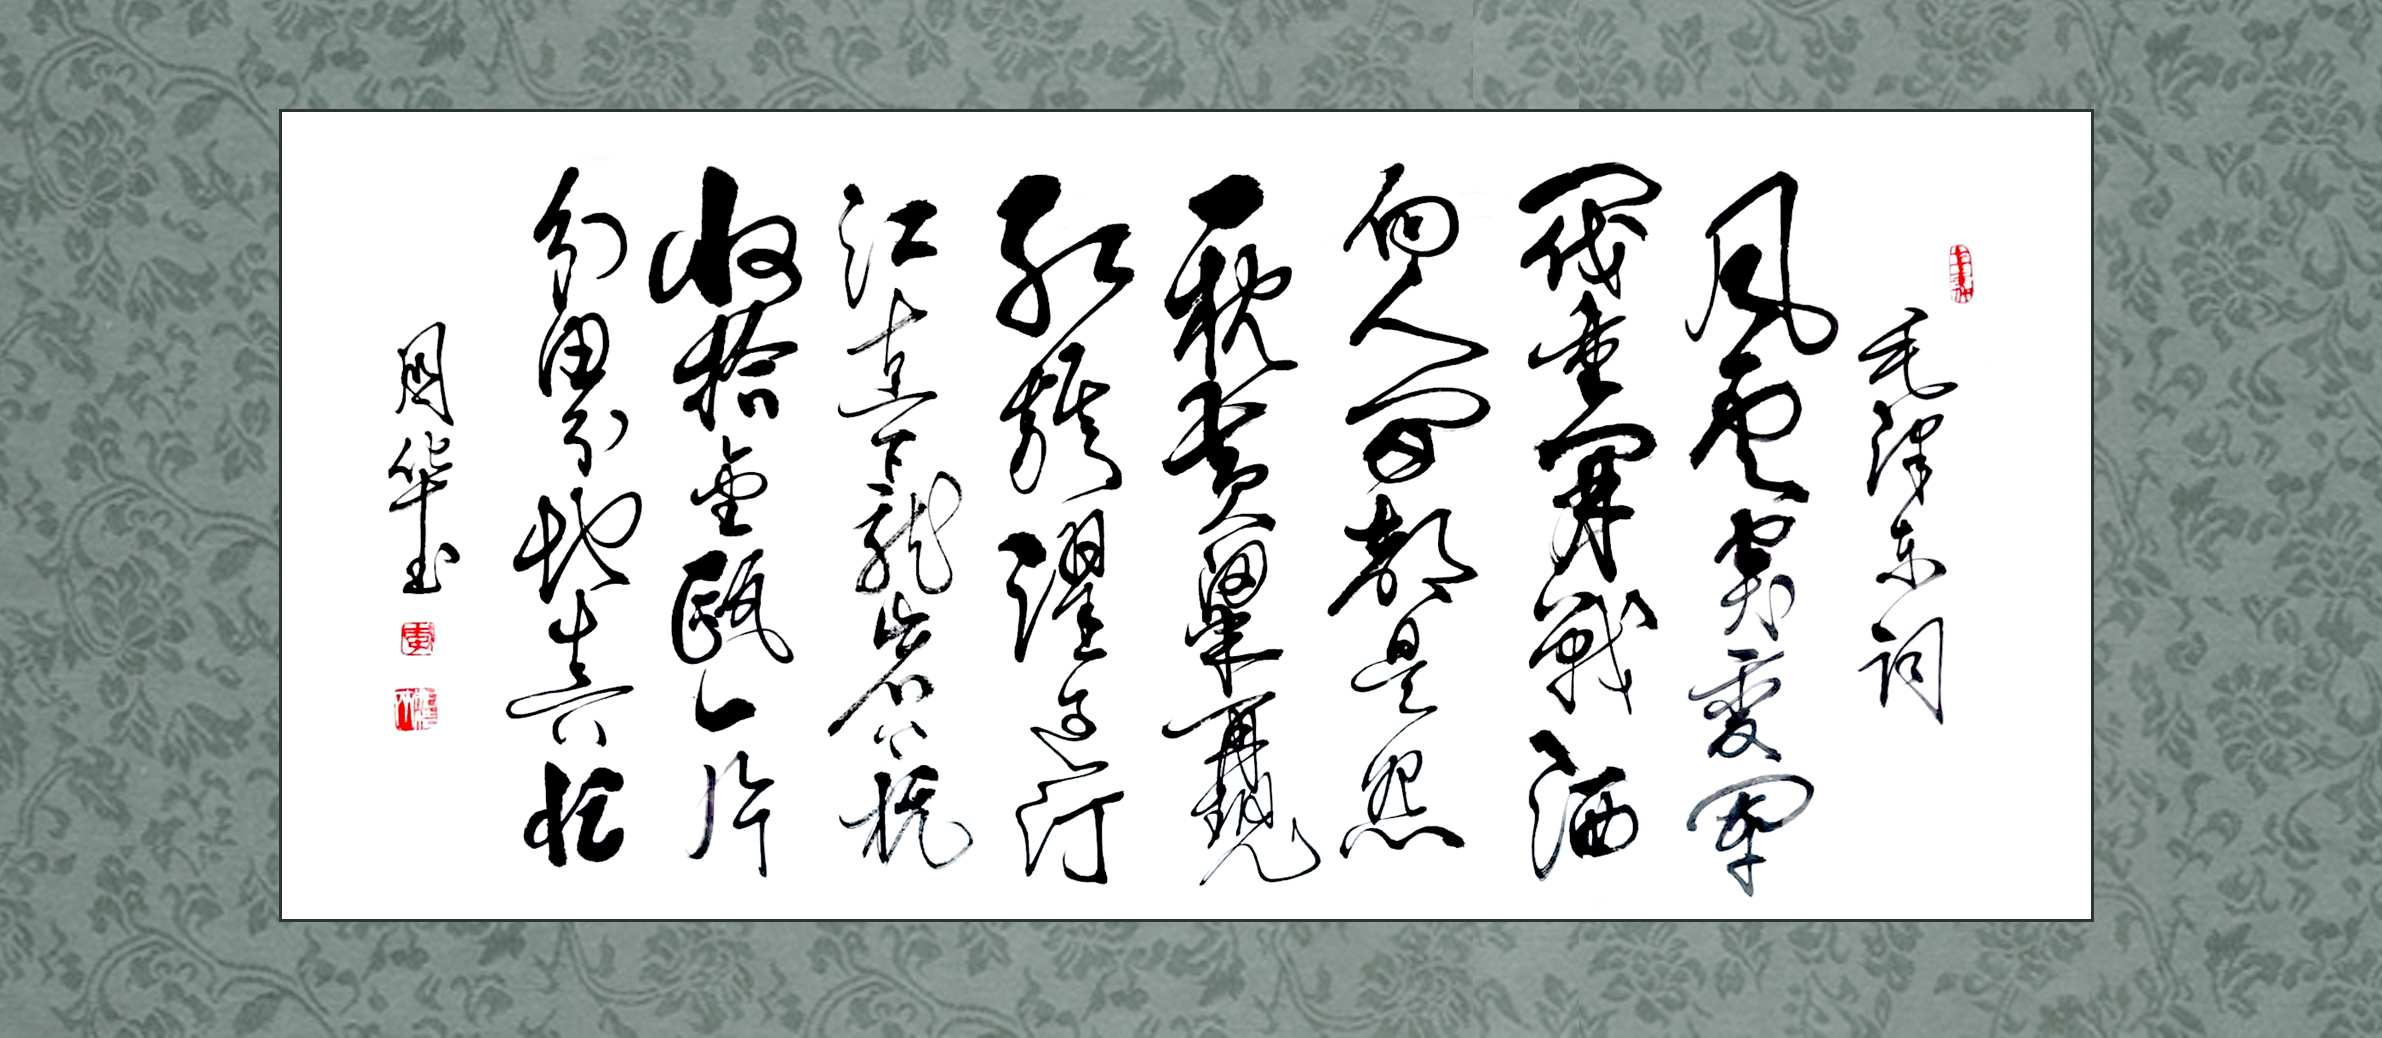 毛泽东词
风云突变军
阀重开戰洒
向人间都是怨
一枕黄粱再現
红旗躍过汀
江直下龍岩上杭
收拾金瓯一片
分田分地真忙
华书